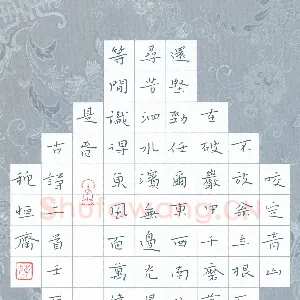 咬定青山
不放鬆立根
在破巖中千磨
還堅勁任爾東西南
尋芳泗水濱無邊光
等閒識得東風面萬
是春
古詩首壬
齋
Shufawang.CN